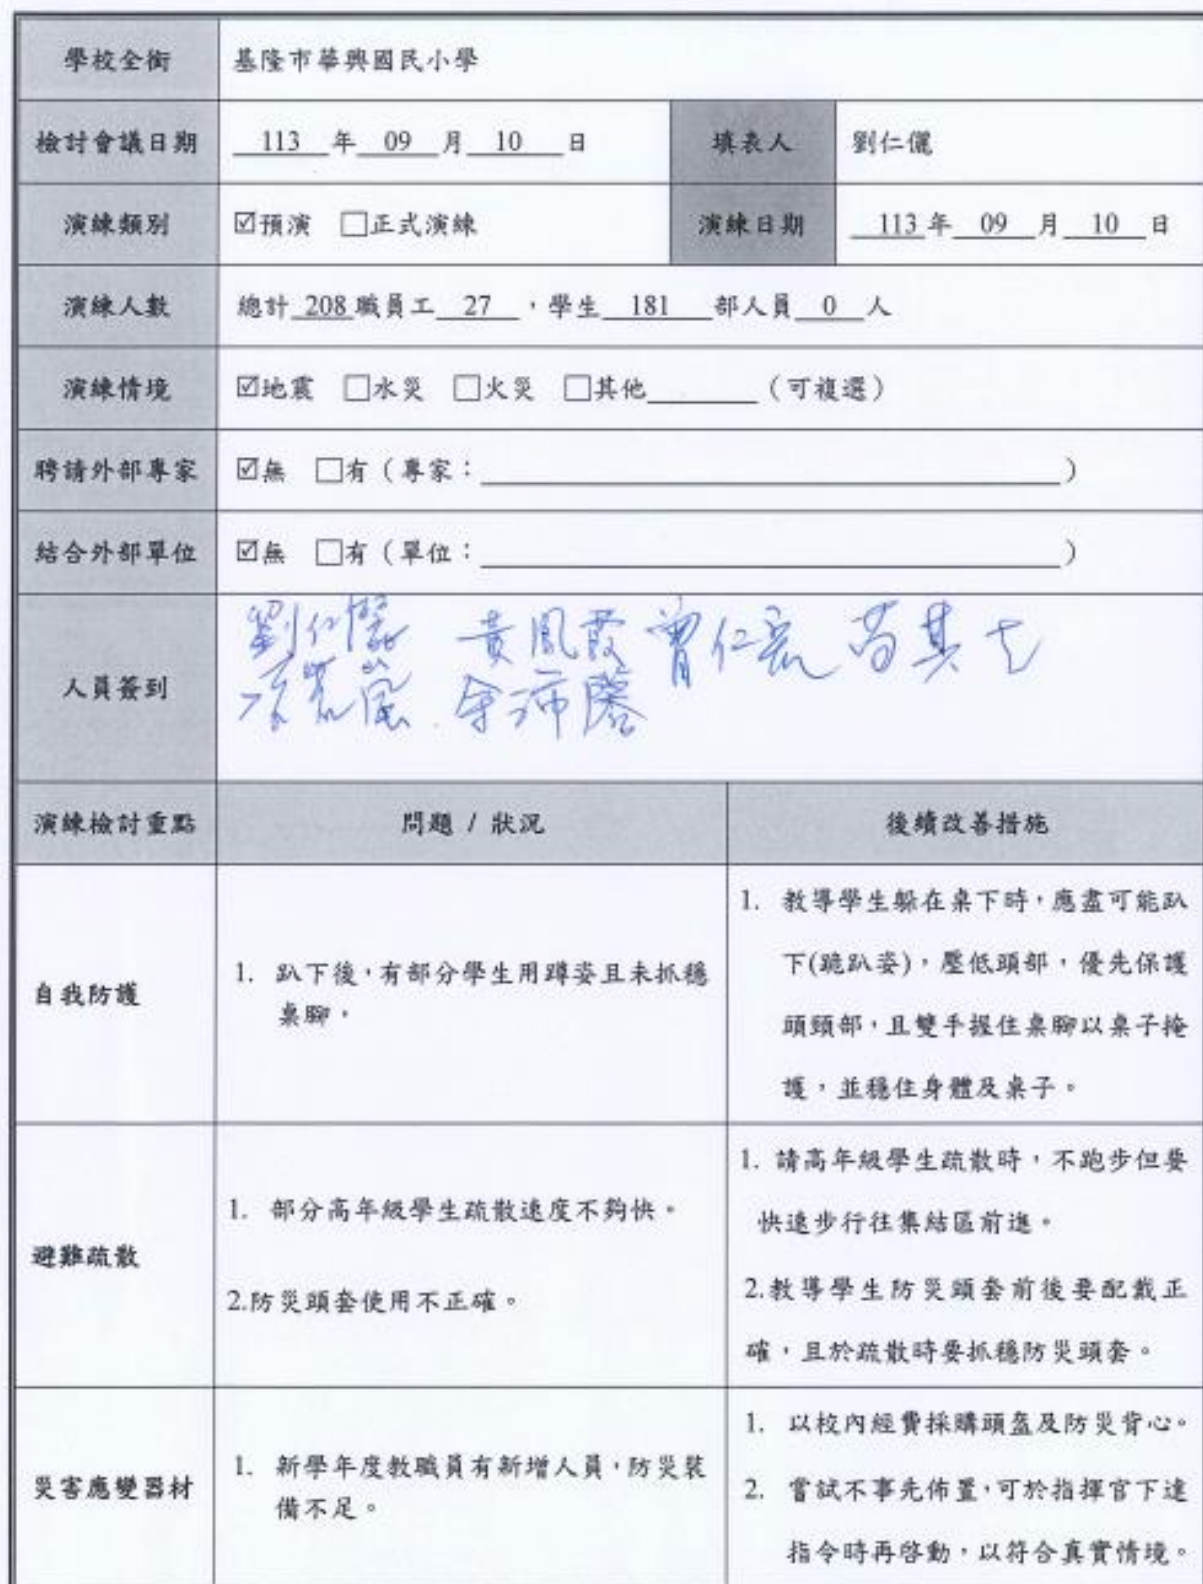 學校全銜 基隆市華興國民小學
檢討會議日期 113 年 09 月 10 日 填表人 劉仁儷
演練類別 ☑預演 □正式演練 演練日期 113 年 09 月 10 日
演練人數 總計 208 職員工 27 ，學生 181 部人員 0 人
演練情境 ☑地震 □水災 □火災 □其他________（可複選）
聘請外部專家 ☑無 □有（專家：________）
結合外部單位 ☑無 □有（單位：________）
人員簽到
黃鳳霞 曾仁
余沛
演練檢討重點 問題 / 狀況 後續改善措施
自我防護
1. 趴下後，有部分學生用蹲姿且未抓穩
桌腳，
1. 教導學生躲在桌下時，應盡可能趴
下(跪趴姿)，壓低頭部，優先保護
頭頸部，且雙手握住桌腳以桌子掩
護，並穩住身體及桌子。
避難疏散
1. 部分高年級學生疏散速度不夠快。
2.防災頭套使用不正確。
1. 請高年級學生疏散時，不跑步但要
快速步行往集結區前進。
2.教導學生防災頭套前後要配戴正
確，且於疏散時要抓穩防災頭套。
災害應變器材
1. 新學年度教職員有新增人員，防災裝
備不足。
1. 以校內經費採購頭盔及防災背心。
2. 嘗試不事先佈置，可於指揮官下達
指令時再啓動，以符合真實情境。